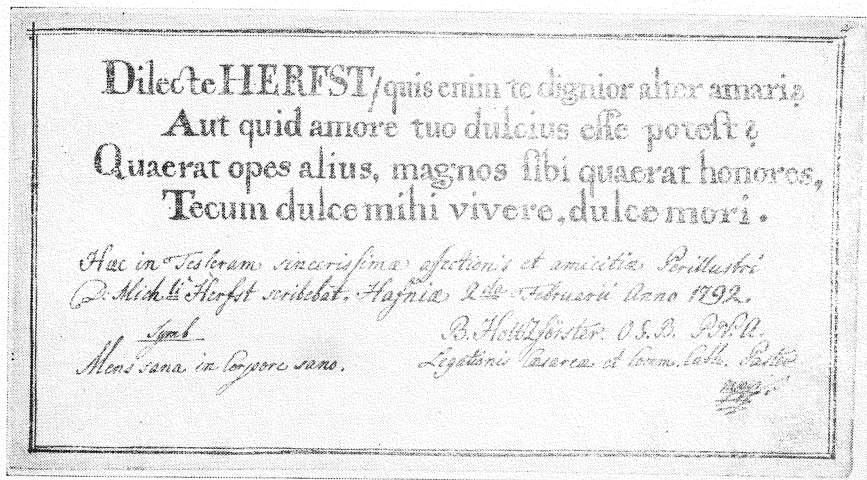 Dilecte HERFST/quis enim te dignior alter amari?
Aut quid amore tuo dulcius eſſe poteſt?
Quaerat opes alius, magnos ſibi quaerat honores,
Tecum dulce mihi vivere, dulce mori.
Hæc in Teſseram sinceriſsimæ affectionis et amicitiæ Perillustri
D: Mich:li Herfst scribebat. Hafniæ 2da Februarii Anno 1792.
Symb
Mens sana in Corpore sano.
B. Holtzförster. O.S.B.
Legationis Cæsareæ et Comm. Cath. Pastor